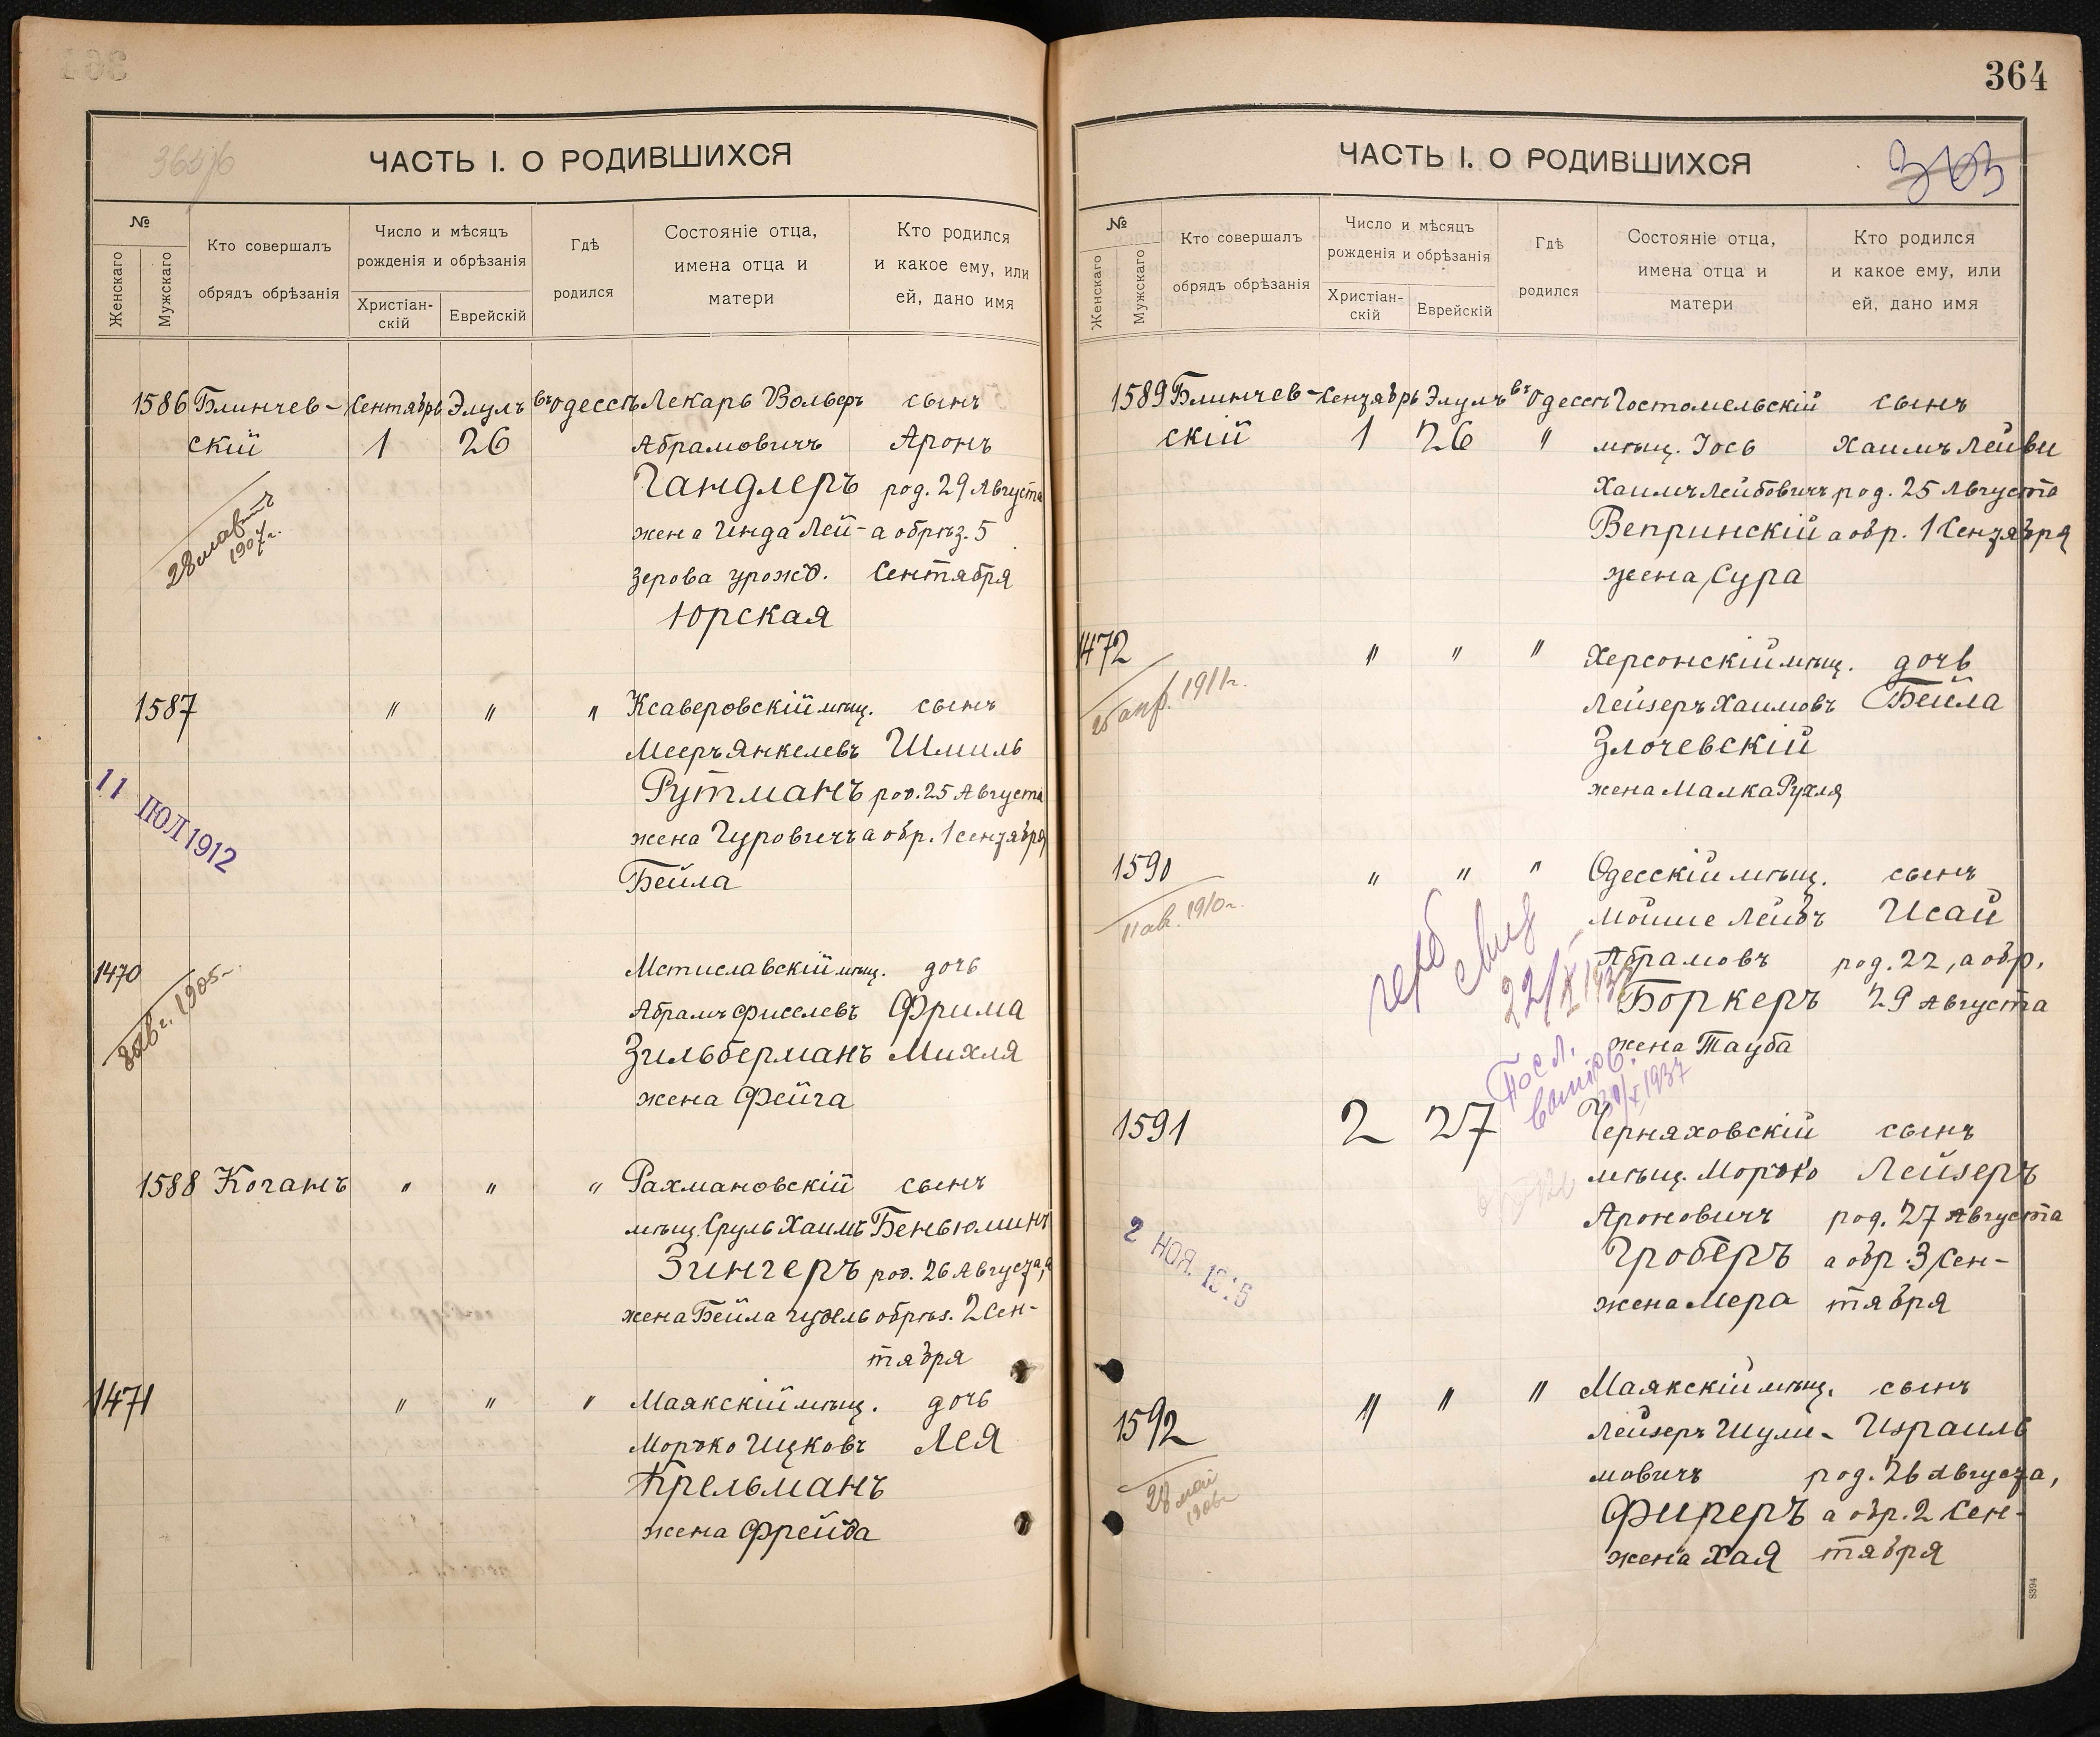 364
ЧАСТЬ I. О РОДИВШИХСЯ
№
Женскаго
Мужскаго
Кто совершалъ
обрядъ обрѣзанія
Число и мѣсяцъ
рожденія и обрѣзанія
Христіан-
скій
Еврейскій
Гдѣ
родился
Состояніе отца,
имена отца и
матери
Кто родился
и какое ему, или
ей, дано имя
1586 Блинчев- Сентябрь Элулъ въ Одессѣ Лекарь Вольфъ сынъ
скій 1 26 Абрамовичъ Аронъ
Гандлеръ род. 29 Августа
жена Гинда Лей- а обрѣз. 5
зерова урожд. Сентября
Юрская
1907 г.
1587 " " " Ксаверовскій мѣщ. сынъ
Мееръ Янкелевъ Шмиль
Рутманъ род. 25 Августа
жена Гуровичъ а обр. 1 сентября
Бейла
11 ІЮЛ 1912
1470 Мстиславскій мѣщ. дочь
Абрамъ Фиселевъ Фрима
Зильберманъ Михля
жена Фейга
8 авг. 1905 г.
1588 Коганъ " " " Рахмановскій сынъ
мѣщ. Сруль Хаимъ Беньюминъ
Зингеръ род. 26 Августа, а
жена Бейла Гудель обрѣз. 2 Сен-
тября
1471 " " " Маякскій мѣщ. дочь
Мордко Ицковъ Лея
Крельманъ
жена Фрейда
ЧАСТЬ I. О РОДИВШИХСЯ
363
№
Женскаго
Мужскаго
Кто совершалъ
обрядъ обрѣзанія
Число и мѣсяцъ
рожденія и обрѣзанія
Христіан-
скій
Еврейскій
Гдѣ
родился
Состояніе отца,
имена отца и
матери
Кто родился
и какое ему, или
ей, дано имя
1589 Блинчев- Сентябрь Элулъ въ Одессѣ Гостомельскій сынъ
скій 1 26 " мѣщ. Іось Хаимъ Лейви
Хаимъ Лейбовичъ род. 25 Августа
Вепринскій а обр. 1 Сентября
жена Сура
1472 " " " Херсонскій мѣщ. дочь
Лейзеръ Хаимовъ Бейла
Злочевскій
жена Малка Рухля
25 апр. 1911 г.
1590 " " " Одесскій мѣщ. сынъ
Мойше Лейбъ Исай
Абрамовъ род. 22, а обр.
Боркеръ 29 Августа
жена Тауба
11 ав. 1910 г.
22/X
30/X 1937
1591 2 27 Черняховскій сынъ
мѣщ. Мордко Лейзеръ
Ароновичъ род. 27 Августа
Гроберъ а обр. 3 Сен-
жена Мера тября
2 НОЯ.
1592 " " " Маякскій мѣщ. сынъ
Лейзеръ Шули- Израиль
мовичъ род. 26 Августа,
Фиреръ а обр. 2 Сен-
жена Хая тября
28 май
1906 г.
8394